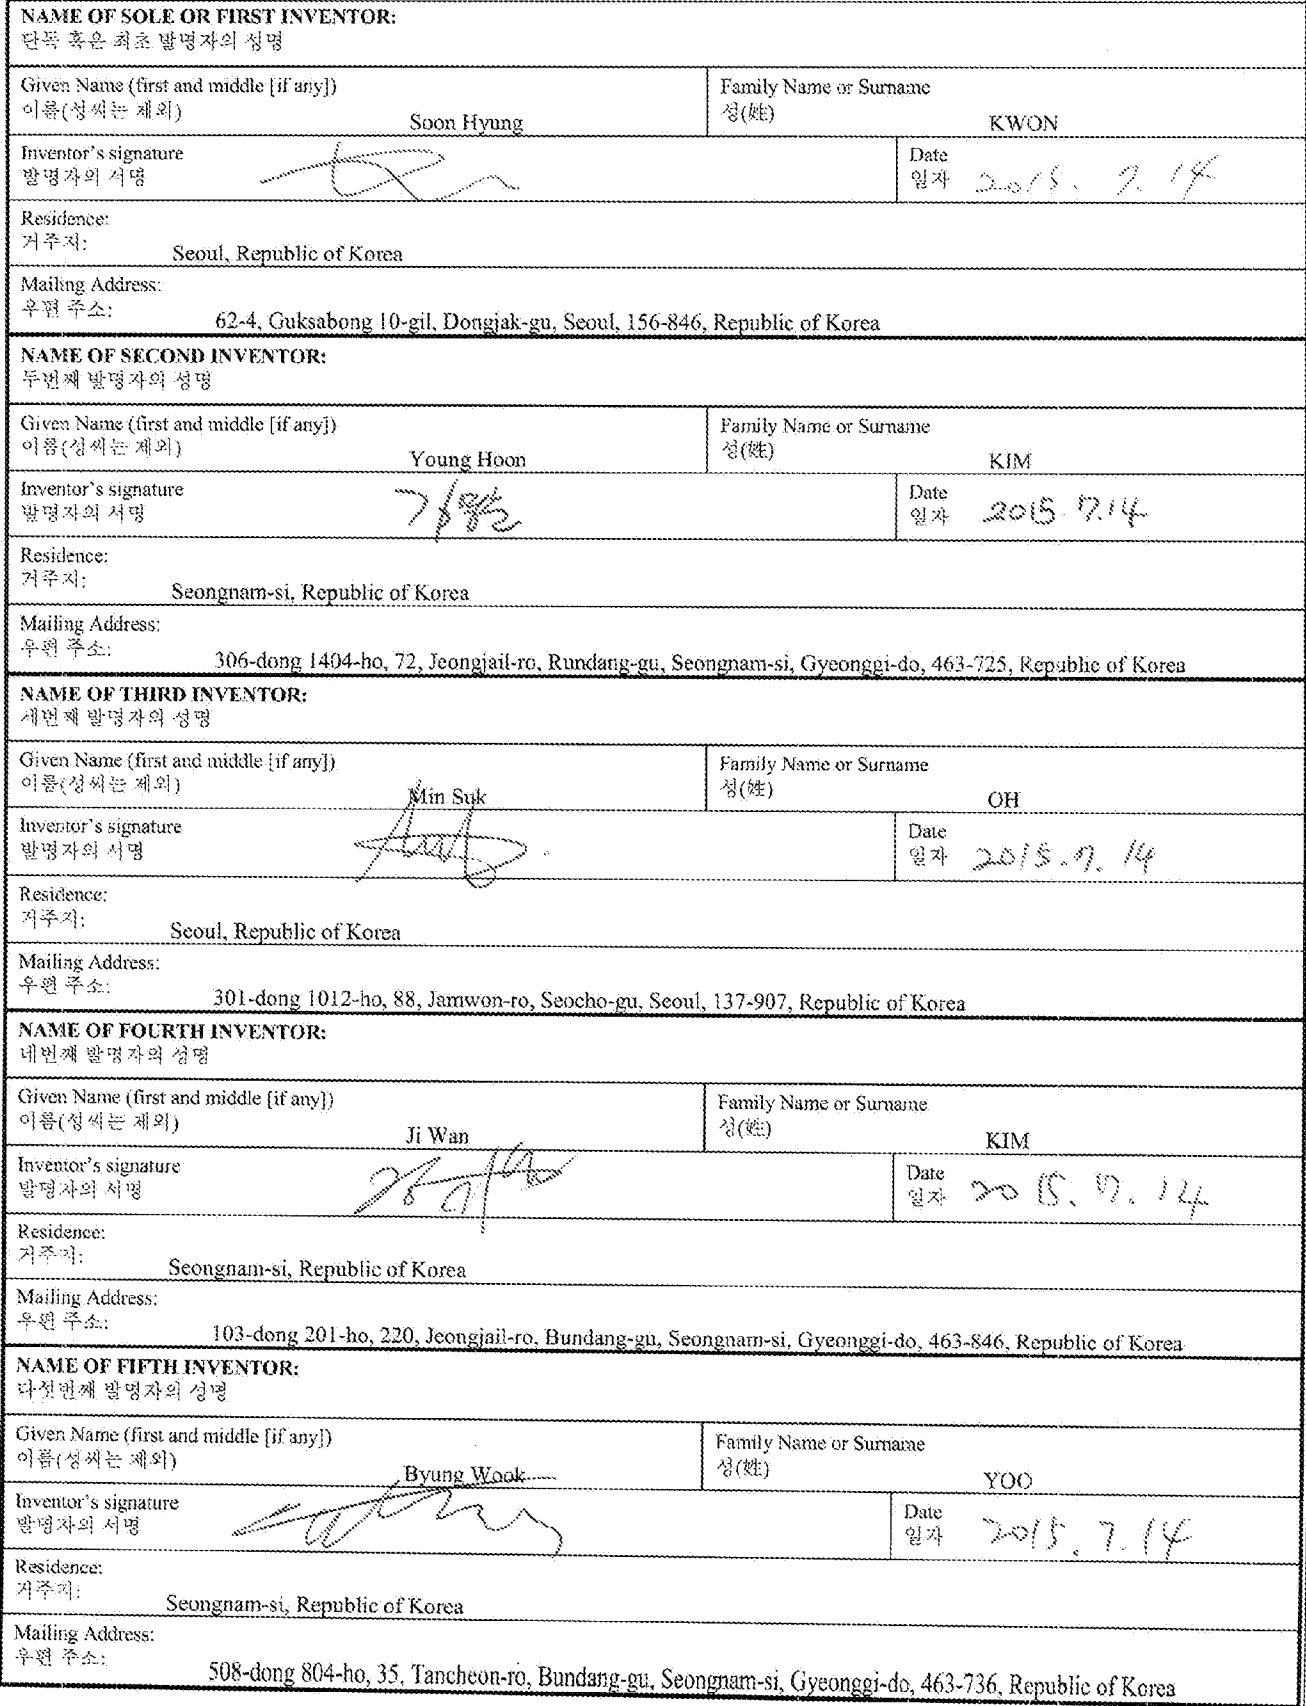 NAME OF SOLE OR FIRST INVENTOR:
단독 혹은 최초 발명자의 성명
Given Name (first and middle [if any])
이름(성씨는 제외)
Soon Hyung
Family Name or Surname
성(姓)
KWON
Inventor's signature
발명자의 서명
Date
일자 2015. 7. 14
Residence:
거주지:
Seoul, Republic of Korea
Mailing Address:
우편 주소:
62-4, Guksabong 10-gil, Dongjak-gu, Seoul, 156-846, Republic of Korea
NAME OF SECOND INVENTOR:
두번째 발명자의 성명
Given Name (first and middle [if any])
이름(성씨는 제외)
Young Hoon
Family Name or Surname
성(姓)
KIM
Inventor's signature
발명자의 서명
Date
일자 2015. 7. 14
Residence:
거주지:
Seongnam-si, Republic of Korea
Mailing Address:
우편 주소:
306-dong 1404-ho, 72, Jeongjail-ro, Rundang-gu, Seongnam-si, Gyeonggi-do, 463-725, Republic of Korea
NAME OF THIRD INVENTOR:
세번째 발명자의 성명
Given Name (first and middle [if any])
이름(성씨는 제외)
Min Suk
Family Name or Surname
성(姓)
OH
Inventor's signature
발명자의 서명
Date
일자 2015. 7. 14
Residence:
거주지:
Seoul, Republic of Korea
Mailing Address:
우편 주소:
301-dong 1012-ho, 88, Jamwon-ro, Seocho-gu, Seoul, 137-907, Republic of Korea
NAME OF FOURTH INVENTOR:
네번째 발명자의 성명
Given Name (first and middle [if any])
이름(성씨는 제외)
Ji Wan
Family Name or Surname
성(姓)
KIM
Inventor's signature
발명자의 서명
Date
일자 2015. 7. 14
Residence:
거주지:
Seongnam-si, Republic of Korea
Mailing Address:
우편 주소:
103-dong 201-ho, 220, Jeongjail-ro, Bundang-gu, Seongnam-si, Gyeonggi-do, 463-846, Republic of Korea
NAME OF FIFTH INVENTOR:
다섯번째 발명자의 성명
Given Name (first and middle [if any])
이름(성씨는 제외)
Byung Wook
Family Name or Surname
성(姓)
YOO
Inventor's signature
발명자의 서명
Date
일자 2015. 7. 14
Residence:
거주지:
Seongnam-si, Republic of Korea
Mailing Address:
우편 주소:
508-dong 804-ho, 35, Tancheon-ro, Bundang-gu, Seongnam-si, Gyeonggi-do, 463-736, Republic of Korea